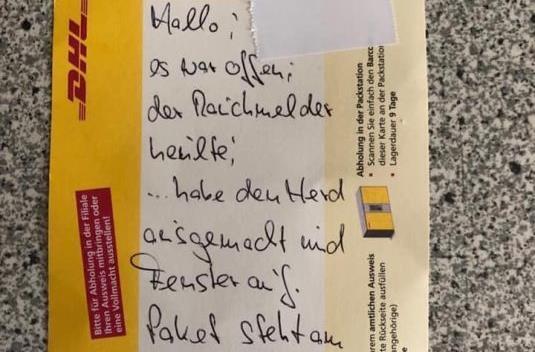 DHL
Bitte für Abholung in der Filiale
Ihren Ausweis mitbringen oder
eine Vollmacht ausstellen!
Hallo;
es war offen;
der Rauchmelder
heulte;
...habe den Herd
ausgemacht und
Fenster auf.
Paket steht am
Abholung in der Packstation
• Scannen Sie einfach den Barc
dieser Karte an der Packstation
• Lagerdauer 9 Tage
rem amtlichen Ausweis
te Rückseite ausfüllen
angehörige)